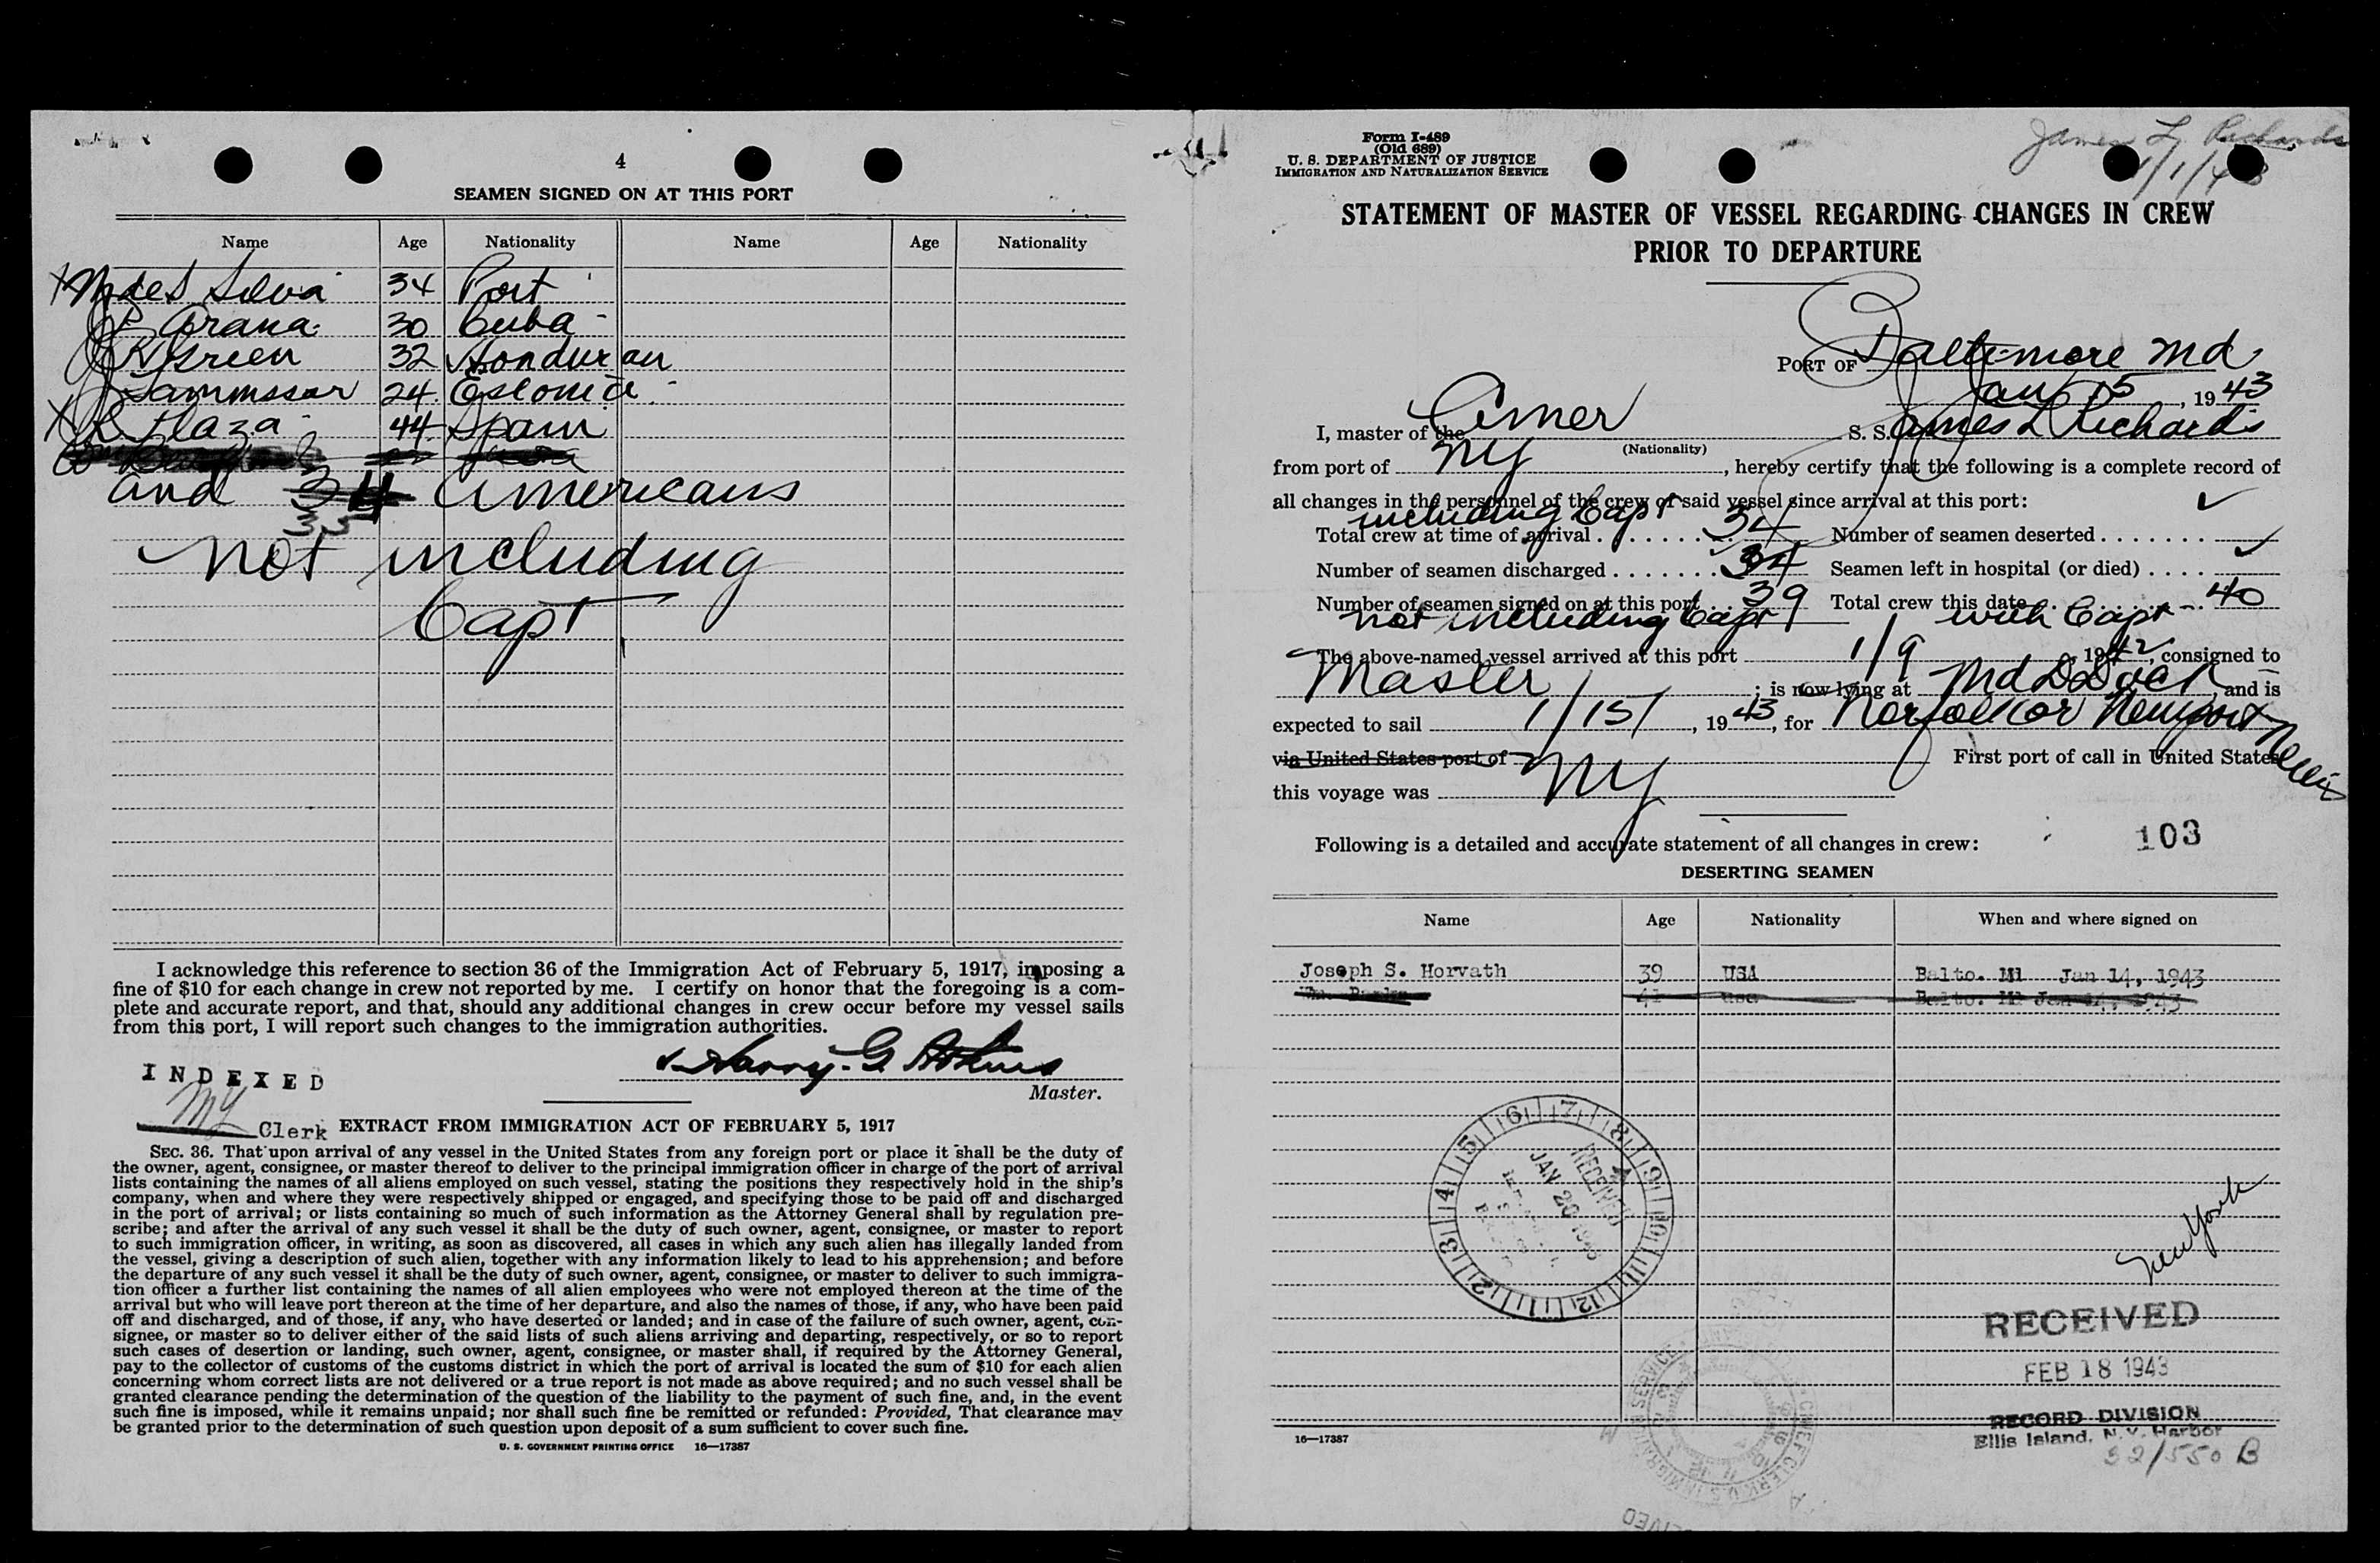 4
SEAMEN SIGNED ON AT THIS PORT
Name Age Nationality Name Age Nationality
34 Port
P Arana 30 Cuba
Green 32 Honduran
J Tammssar 24
R Plaza 44 Spain
and 35 Americans
not including
Capt
I acknowledge this reference to section 36 of the Immigration Act of February 5, 1917, imposing a
fine of $10 for each change in crew not reported by me. I certify on honor that the foregoing is a com-
plete and accurate report, and that, should any additional changes in crew occur before my vessel sails
from this port, I will report such changes to the immigration authorities.
Harry G
Master.
INDEXED
Clerk
EXTRACT FROM IMMIGRATION ACT OF FEBRUARY 5, 1917
SEC. 36. That upon arrival of any vessel in the United States from any foreign port or place it shall be the duty of
the owner, agent, consignee, or master thereof to deliver to the principal immigration officer in charge of the port of arrival
lists containing the names of all aliens employed on such vessel, stating the positions they respectively hold in the ship's
company, when and where they were respectively shipped or engaged, and specifying those to be paid off and discharged
in the port of arrival; or lists containing so much of such information as the Attorney General shall by regulation pre-
scribe; and after the arrival of any such vessel it shall be the duty of such owner, agent, consignee, or master to report
to such immigration officer, in writing, as soon as discovered, all cases in which any such alien has illegally landed from
the vessel, giving a description of such alien, together with any information likely to lead to his apprehension; and before
the departure of any such vessel it shall be the duty of such owner, agent, consignee, or master to deliver to such immigra-
tion officer a further list containing the names of all alien employees who were not employed thereon at the time of the
arrival but who will leave port thereon at the time of her departure, and also the names of those, if any, who have been paid
off and discharged, and of those, if any, who have deserted or landed; and in case of the failure of such owner, agent, con-
signee, or master so to deliver either of the said lists of such aliens arriving and departing, respectively, or so to report
such cases of desertion or landing, such owner, agent, consignee, or master shall, if required by the Attorney General,
pay to the collector of customs of the customs district in which the port of arrival is located the sum of $10 for each alien
concerning whom correct lists are not delivered or a true report is not made as above required; and no such vessel shall be
granted clearance pending the determination of the question of the liability to the payment of such fine, and, in the event
such fine is imposed, while it remains unpaid; nor shall such fine be remitted or refunded: Provided, That clearance may
be granted prior to the determination of such question upon deposit of a sum sufficient to cover such fine.
U. S. GOVERNMENT PRINTING OFFICE 16—17387
Form I-489
(Old 689)
U. S. DEPARTMENT OF JUSTICE
IMMIGRATION AND NATURALIZATION SERVICE
James L. Richards
1/1/43
STATEMENT OF MASTER OF VESSEL REGARDING CHANGES IN CREW
PRIOR TO DEPARTURE
PORT OF Baltimore Md
Jan 15, 1943
I, master of the Amer S. S. James L Richards
(Nationality)
from port of NY, hereby certify that the following is a complete record of
all changes in the personnel of the crew of said vessel since arrival at this port:
including Capt
Total crew at time of arrival 34 Number of seamen deserted ✓
Number of seamen discharged 34 Seamen left in hospital (or died) ✓
Number of seamen signed on at this port 39 Total crew this date 40
not including Capt with Capt
The above-named vessel arrived at this port 1/9 1942, consigned to
Master; is now lying at Md D Dock, and is
expected to sail 1/15/, 1943, for Norfolk or Newport News
via United States port of First port of call in United States
this voyage was NY
Following is a detailed and accurate statement of all changes in crew:
103
DESERTING SEAMEN
Name Age Nationality When and where signed on
Joseph S. Horvath 39 USA Balto. Md Jan 14, 1943
41 usa Balto. Md Jan 14, 1943
RECEIVED
JAN 20 1943
New York
RECEIVED
FEB 18 1943
RECORD DIVISION
Ellis Island, N. Y. Harbor
32/550 B
16—17387